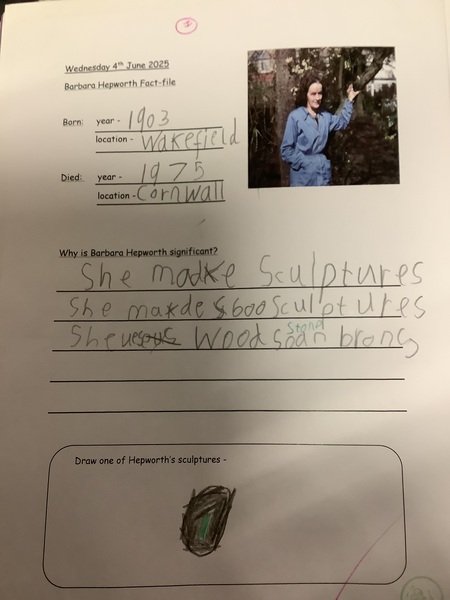 Wednesday 4th June 2025
Barbara Hepworth Fact-file
Born: year - 1903
location - Wakefield
Died: year - 1975
location - Cornwall
Why is Barbara Hepworth significant?
She made Sculptures
She made 600 Sculptures
She Wood Stone brons
Draw one of Hepworth's sculptures -